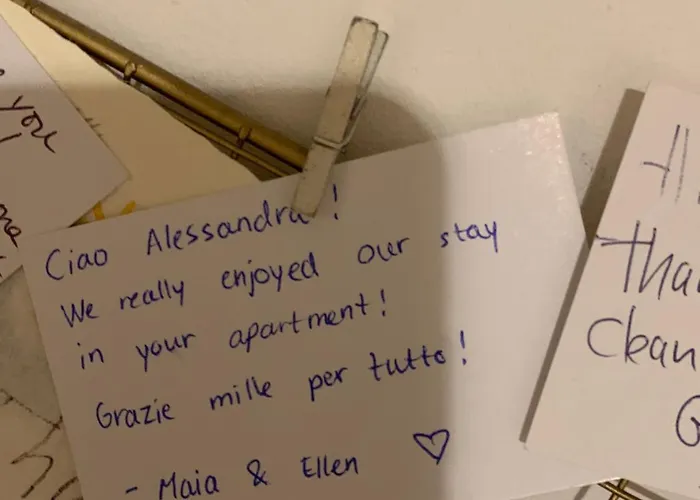 you
Ciao Alessandra !
We really enjoyed our stay
in your apartment!
Grazie mille per tutto!
- Maia & Ellen ♡